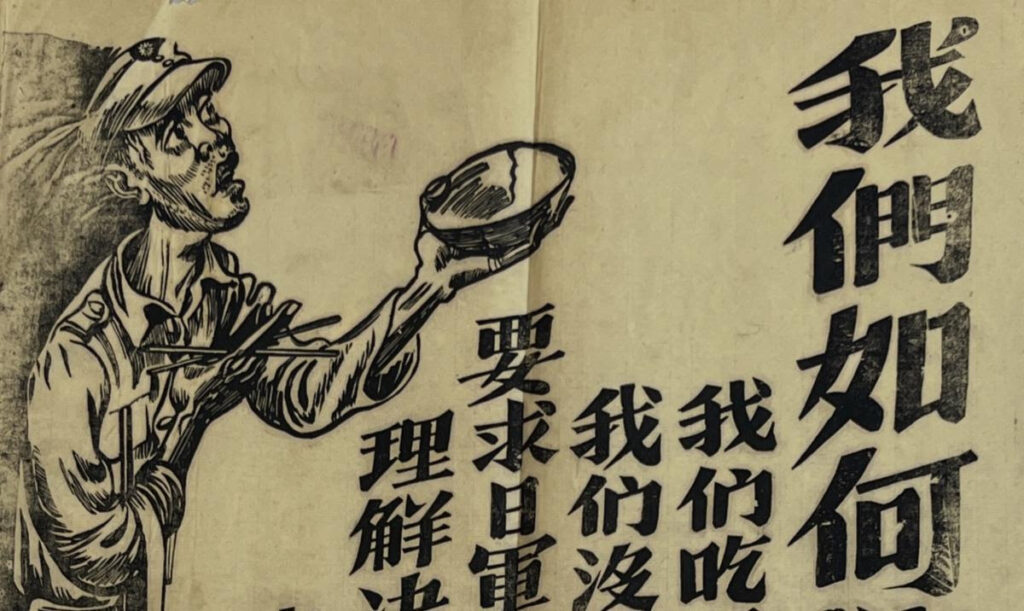 我們如何
我们吃
我们没
要求日軍
理解决